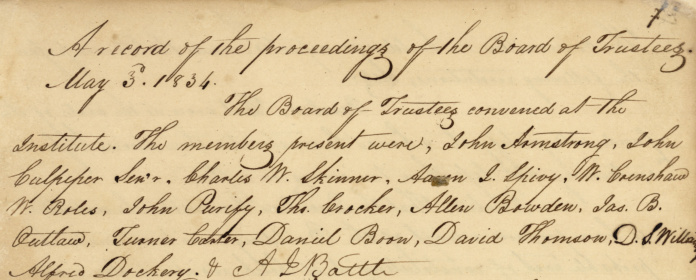 7
A record of the proceedings of the Board of Trustees.
May 3d. 1834.
The Board of Trustees convened at the
Institute. The members present were, John Armstrong, John
Culpeper Senr. Charles W. Skinner, Aaron J. Spivy, W. Crenshaw
W. Roles, John Purify, Thos. Crocker, Allen Bowden, Jas. B.
Outlaw, Turner Carter, Daniel Boon, David Thomson, D. S. Williams
Alfred Dockery. & A J Battle